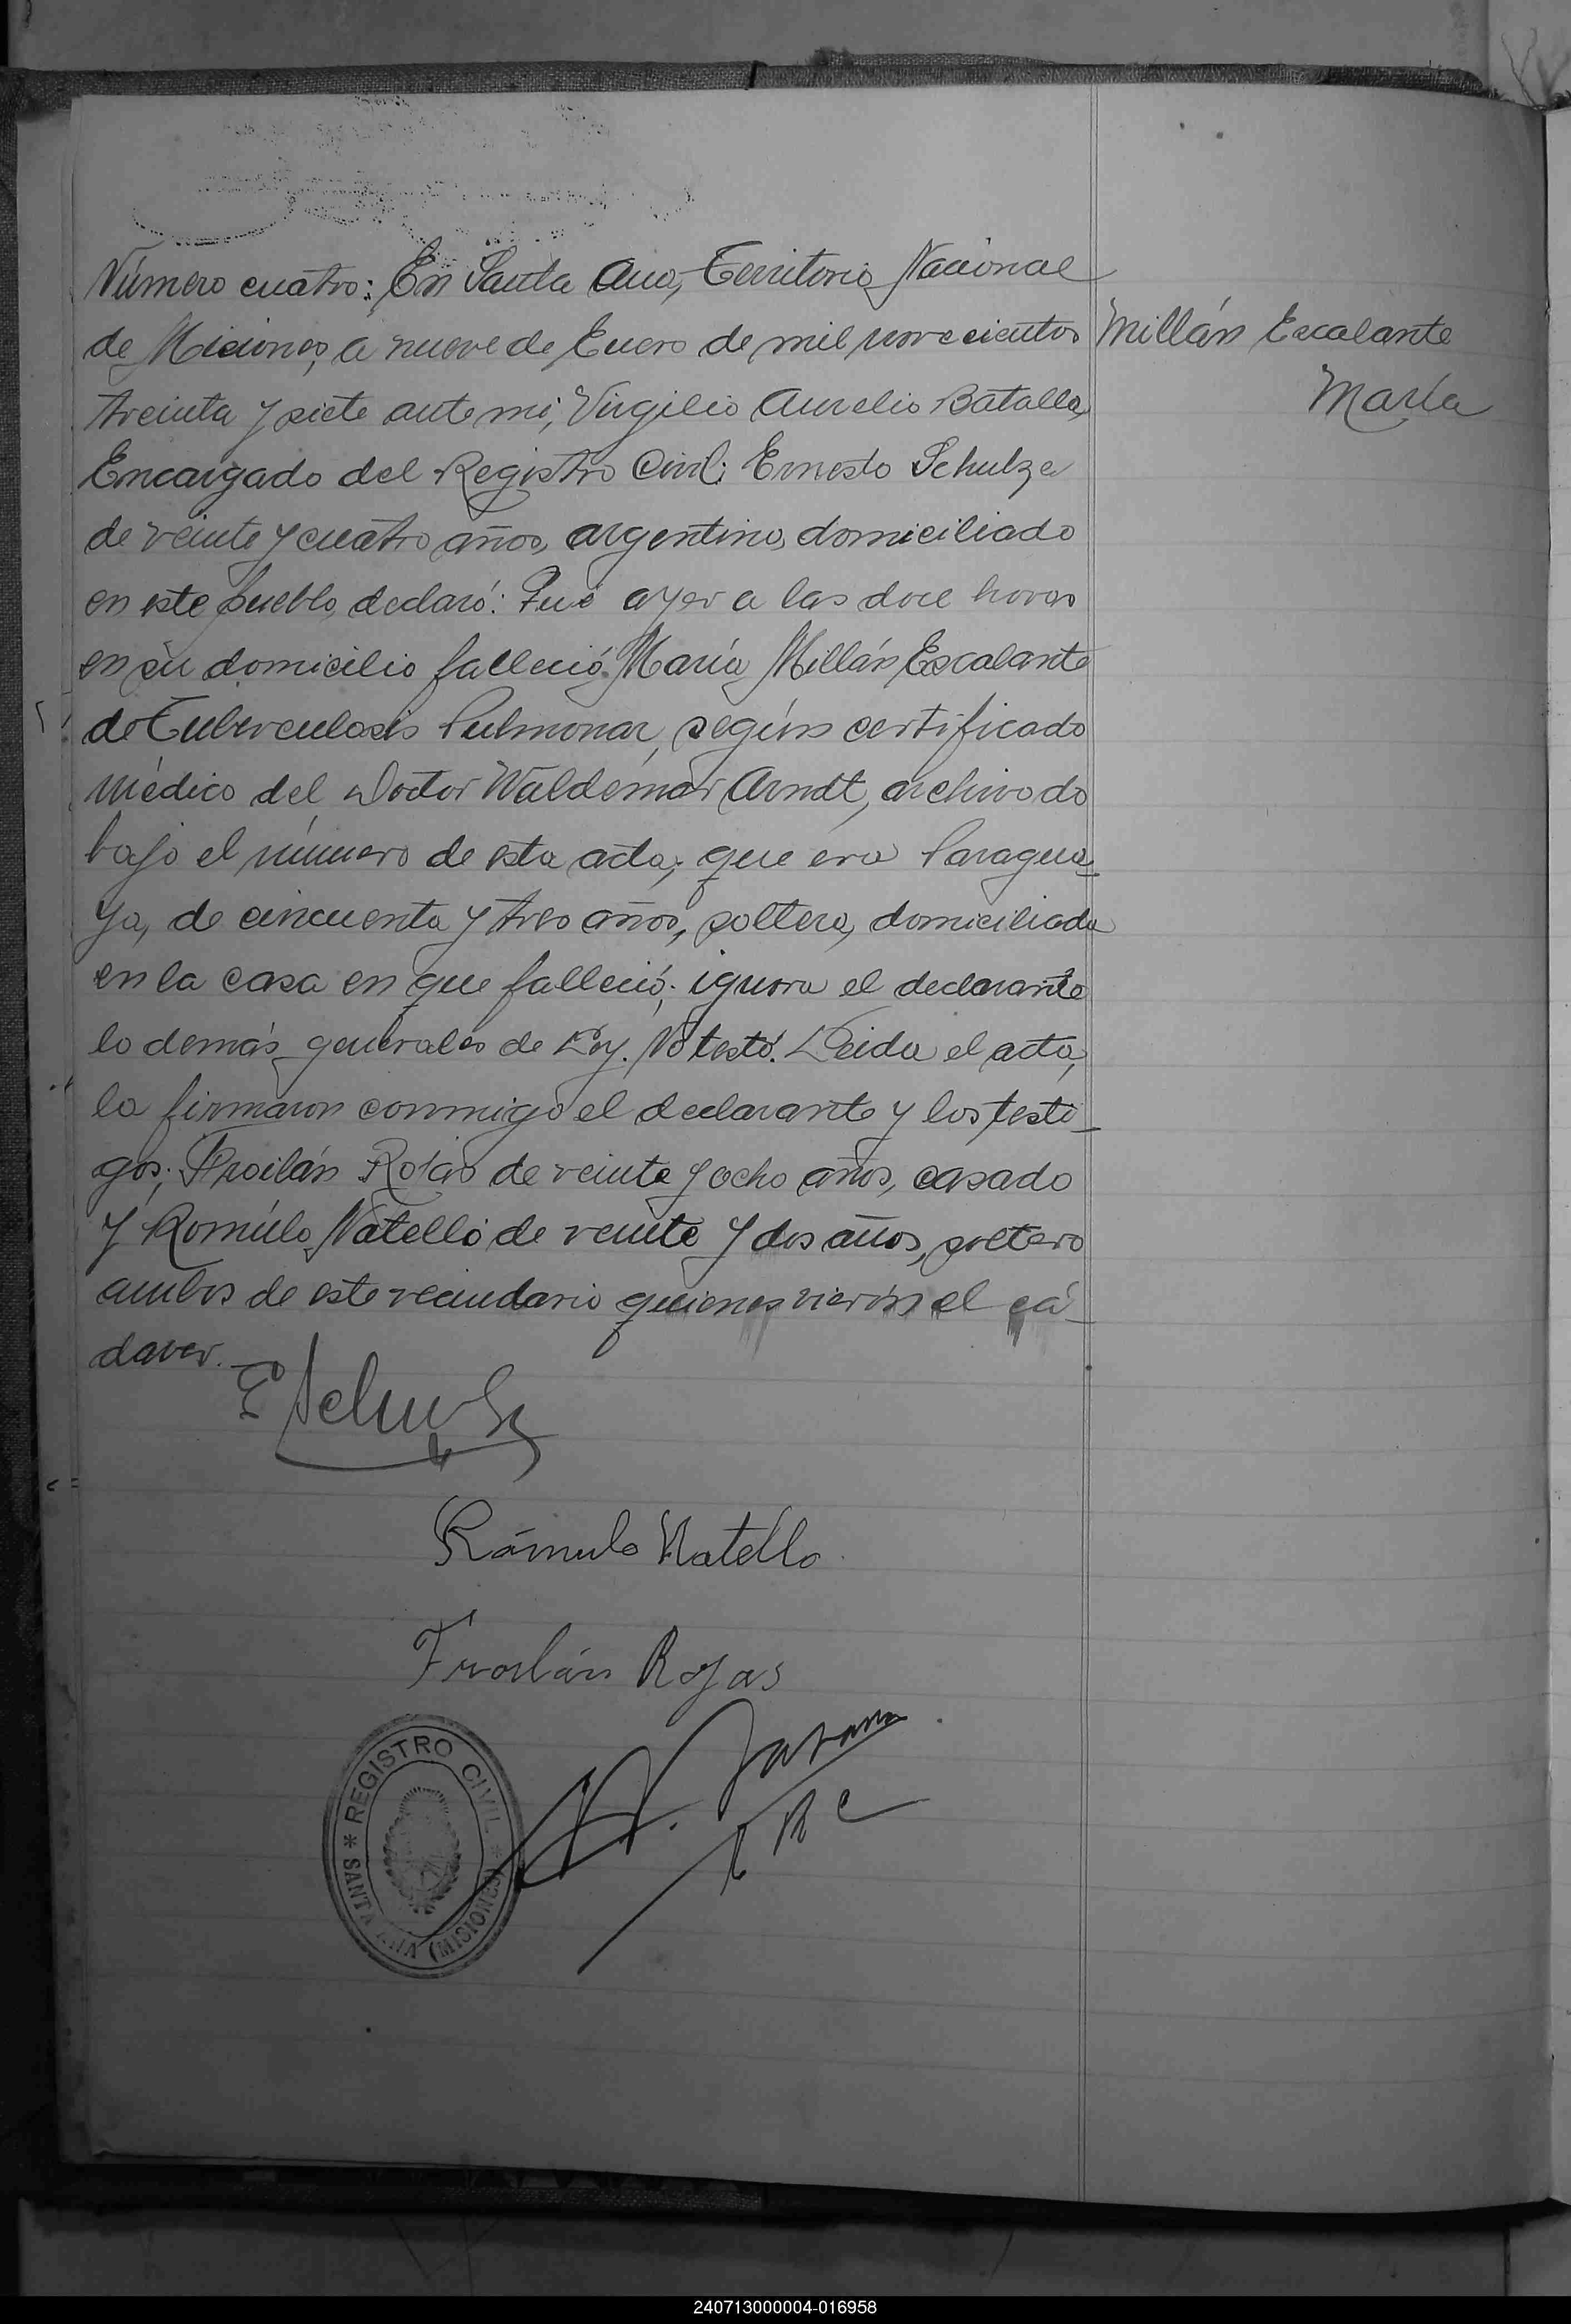 Número cuatro: En Santa Ana, Territorio Nacional
de Misiones, a nueve de Enero de mil novecientos
treinta y siete ante mi, Virgilio Aurelio Batalla,
Encargado del Registro Civil: Ernesto Schulze
de veinte y cuatro años, argentino, domiciliado
en este pueblo, declaró: Que ayer a las doce horas
en su domicilio falleció María Millán Escalante
de Tuberculosis Pulmonar, según certificado
médico del Doctor Waldemar Arndt, archivado
bajo el número de esta acta; que era Paragua-
ya, de cincuenta y tres años, soltera, domiciliada
en la casa en que falleció; ignora el declarante
lo demás generales de Ley. No testó. Leida el acta,
la firmaron conmigo el declarante y los testi-
gos; Froilán Rojas de veinte y ocho años, casado
y Romúlo Natello de veinte y dos años, soltero
ambos de este vecindario quienes vieron el cá-
daver.
Millán Escalante
María
E Schulze
Rómulo Natello
Froilán Rojas
REGISTRO CIVIL
SANTA ANA (MISIONES)
240713000004-016958